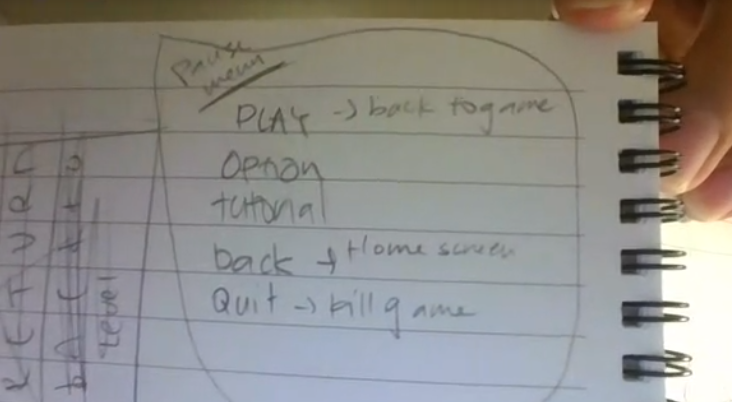 Pause
menu
PLAY → back to game
Option
tutorial
back → Home screen
Quit → kill game
RETURN
level